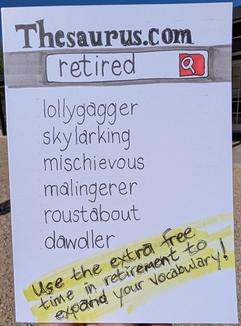 Thesaurus.com
retired
lollygagger
skylarking
mischievous
malingerer
roustabout
dawdler
Use the extra free
time in retirement to
expand your vocabulary!